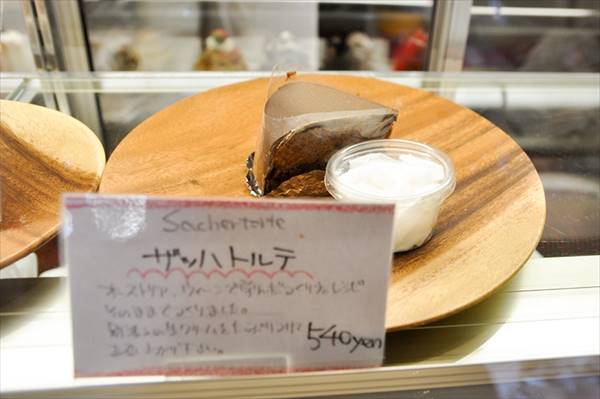 Sachertorte
ザッハトルテ
オーストリア、ウィーンで学んだつくり方、レシピ
そのままでつくりました。
別添えの生クリームをたっぷりつけて
お召し上がり下さい。
540yen